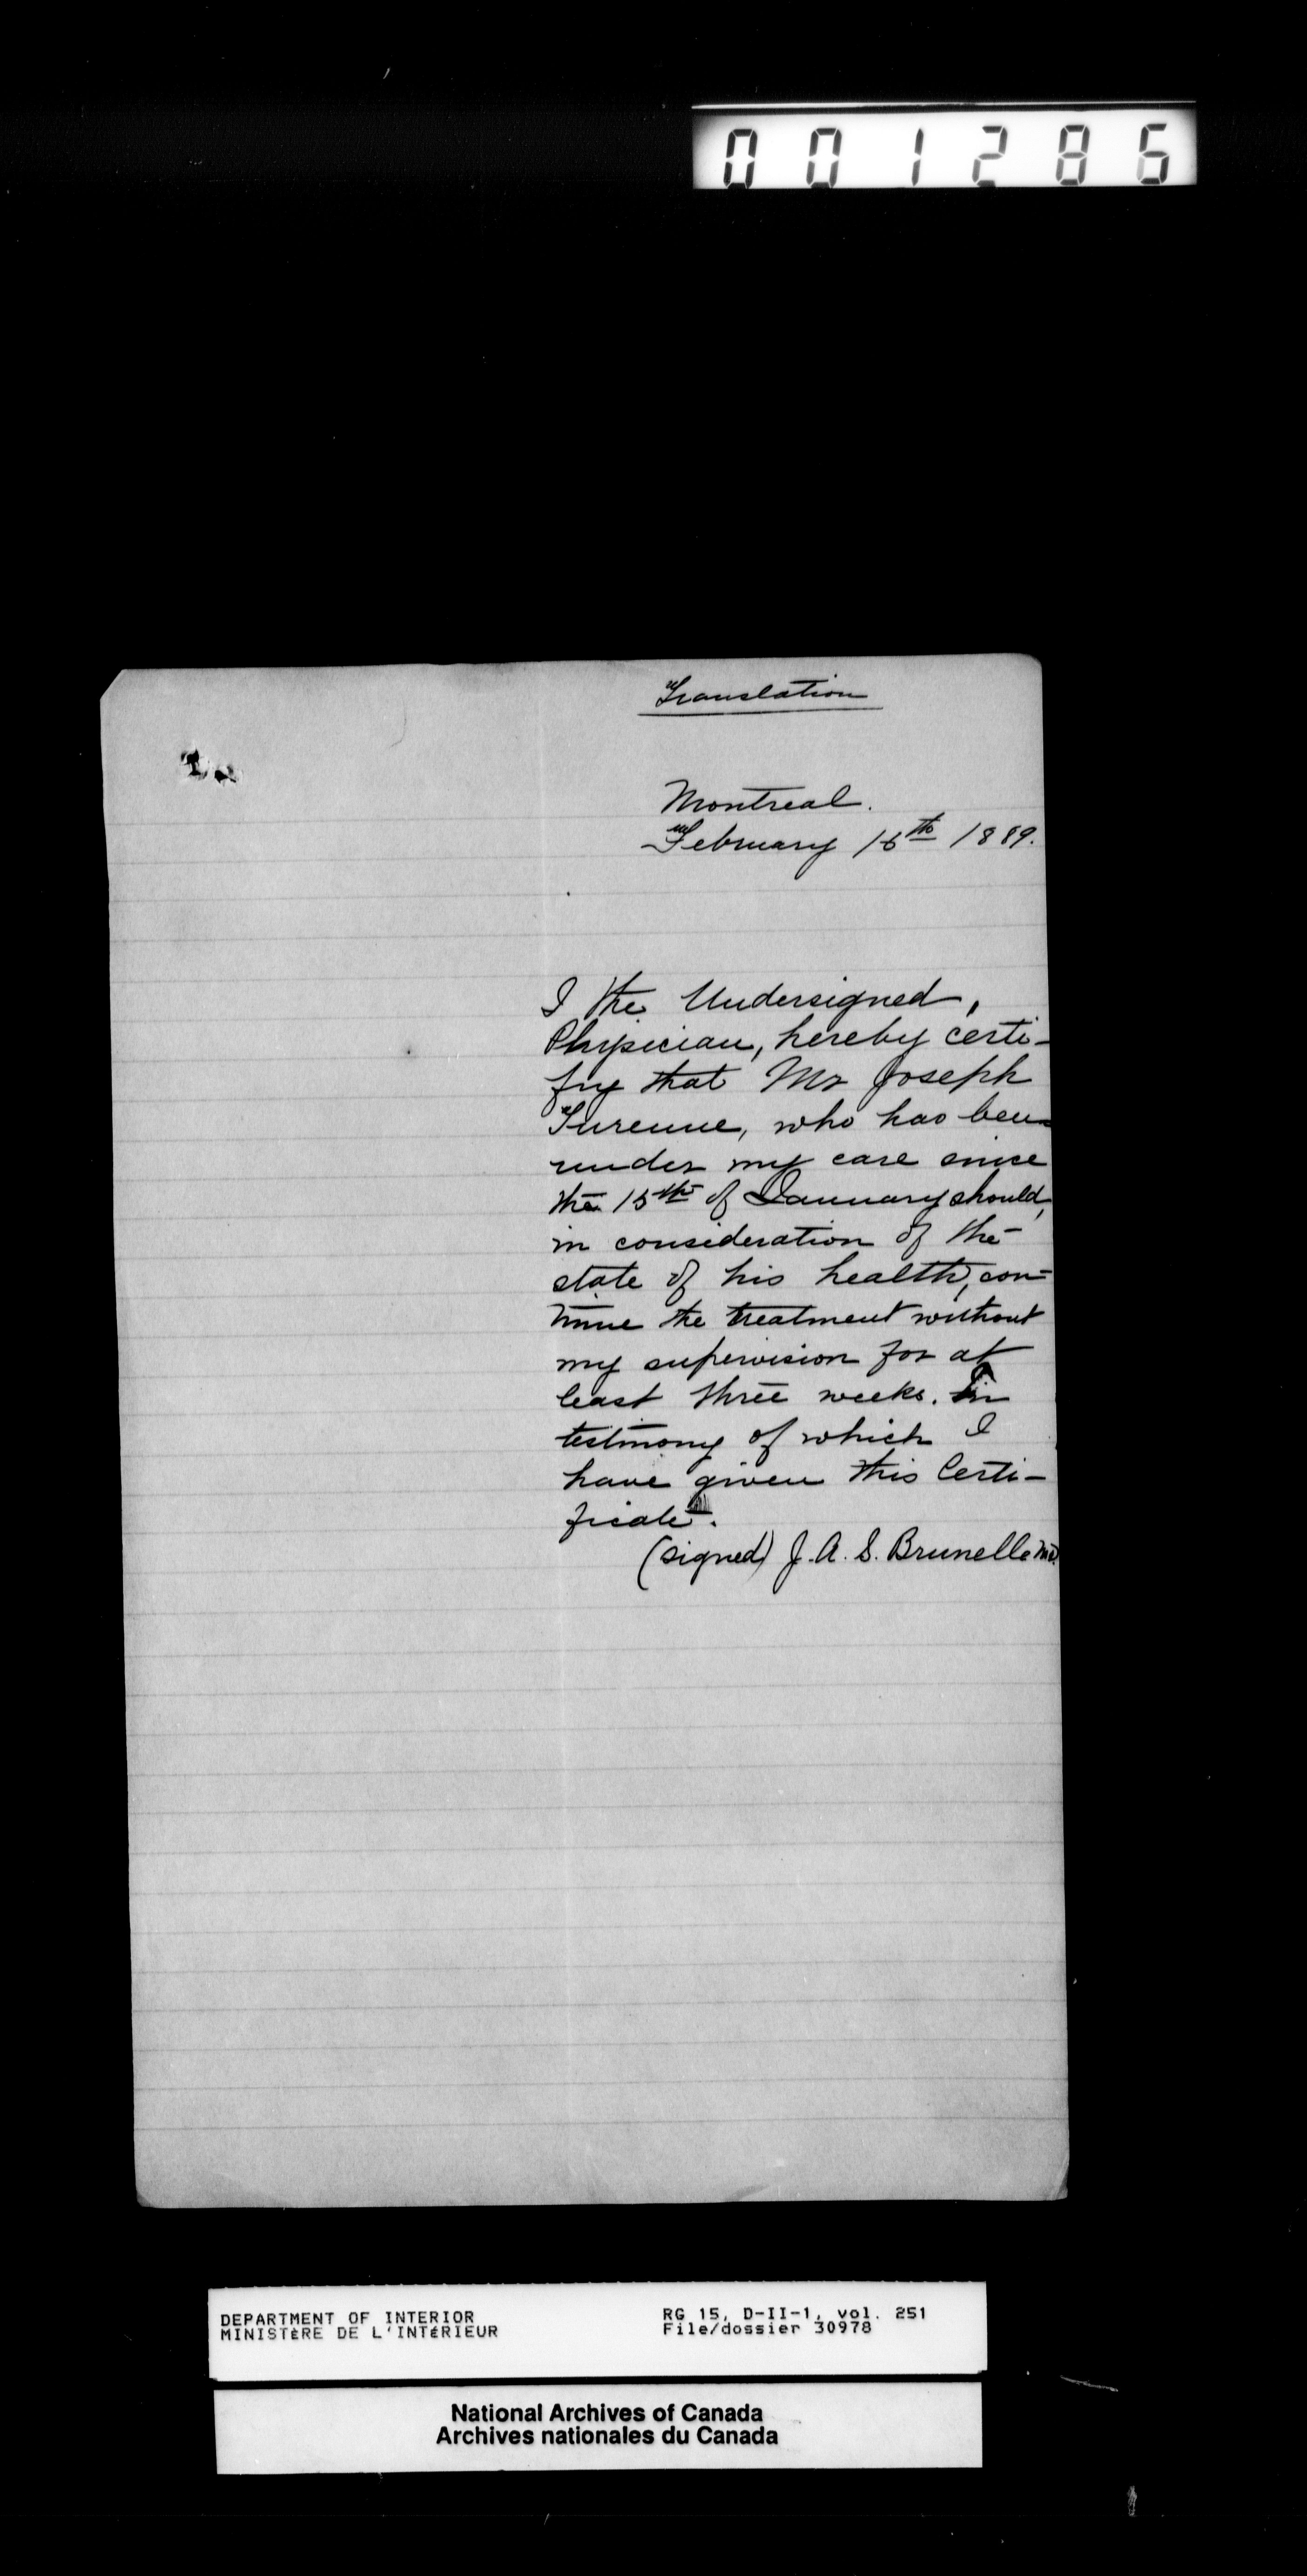 001286
Translation
Montreal.
February 15th 1889.
I the Undersigned,
Physician, hereby certi-
fy that Mr Joseph
Turenne, who has been
under my care since
the 15th of January should,
in consideration of the
state of his health, con-
tinue the treatment without
my supervision for at
least three weeks. In
testimony of which I
have given this Certi-
ficate.
(signed) J. A. S. Brunelle M.D.
DEPARTMENT OF INTERIOR
MINISTÈRE DE L'INTÉRIEUR
RG 15, D-II-1, vol. 251
File/dossier 30978
National Archives of Canada
Archives nationales du Canada